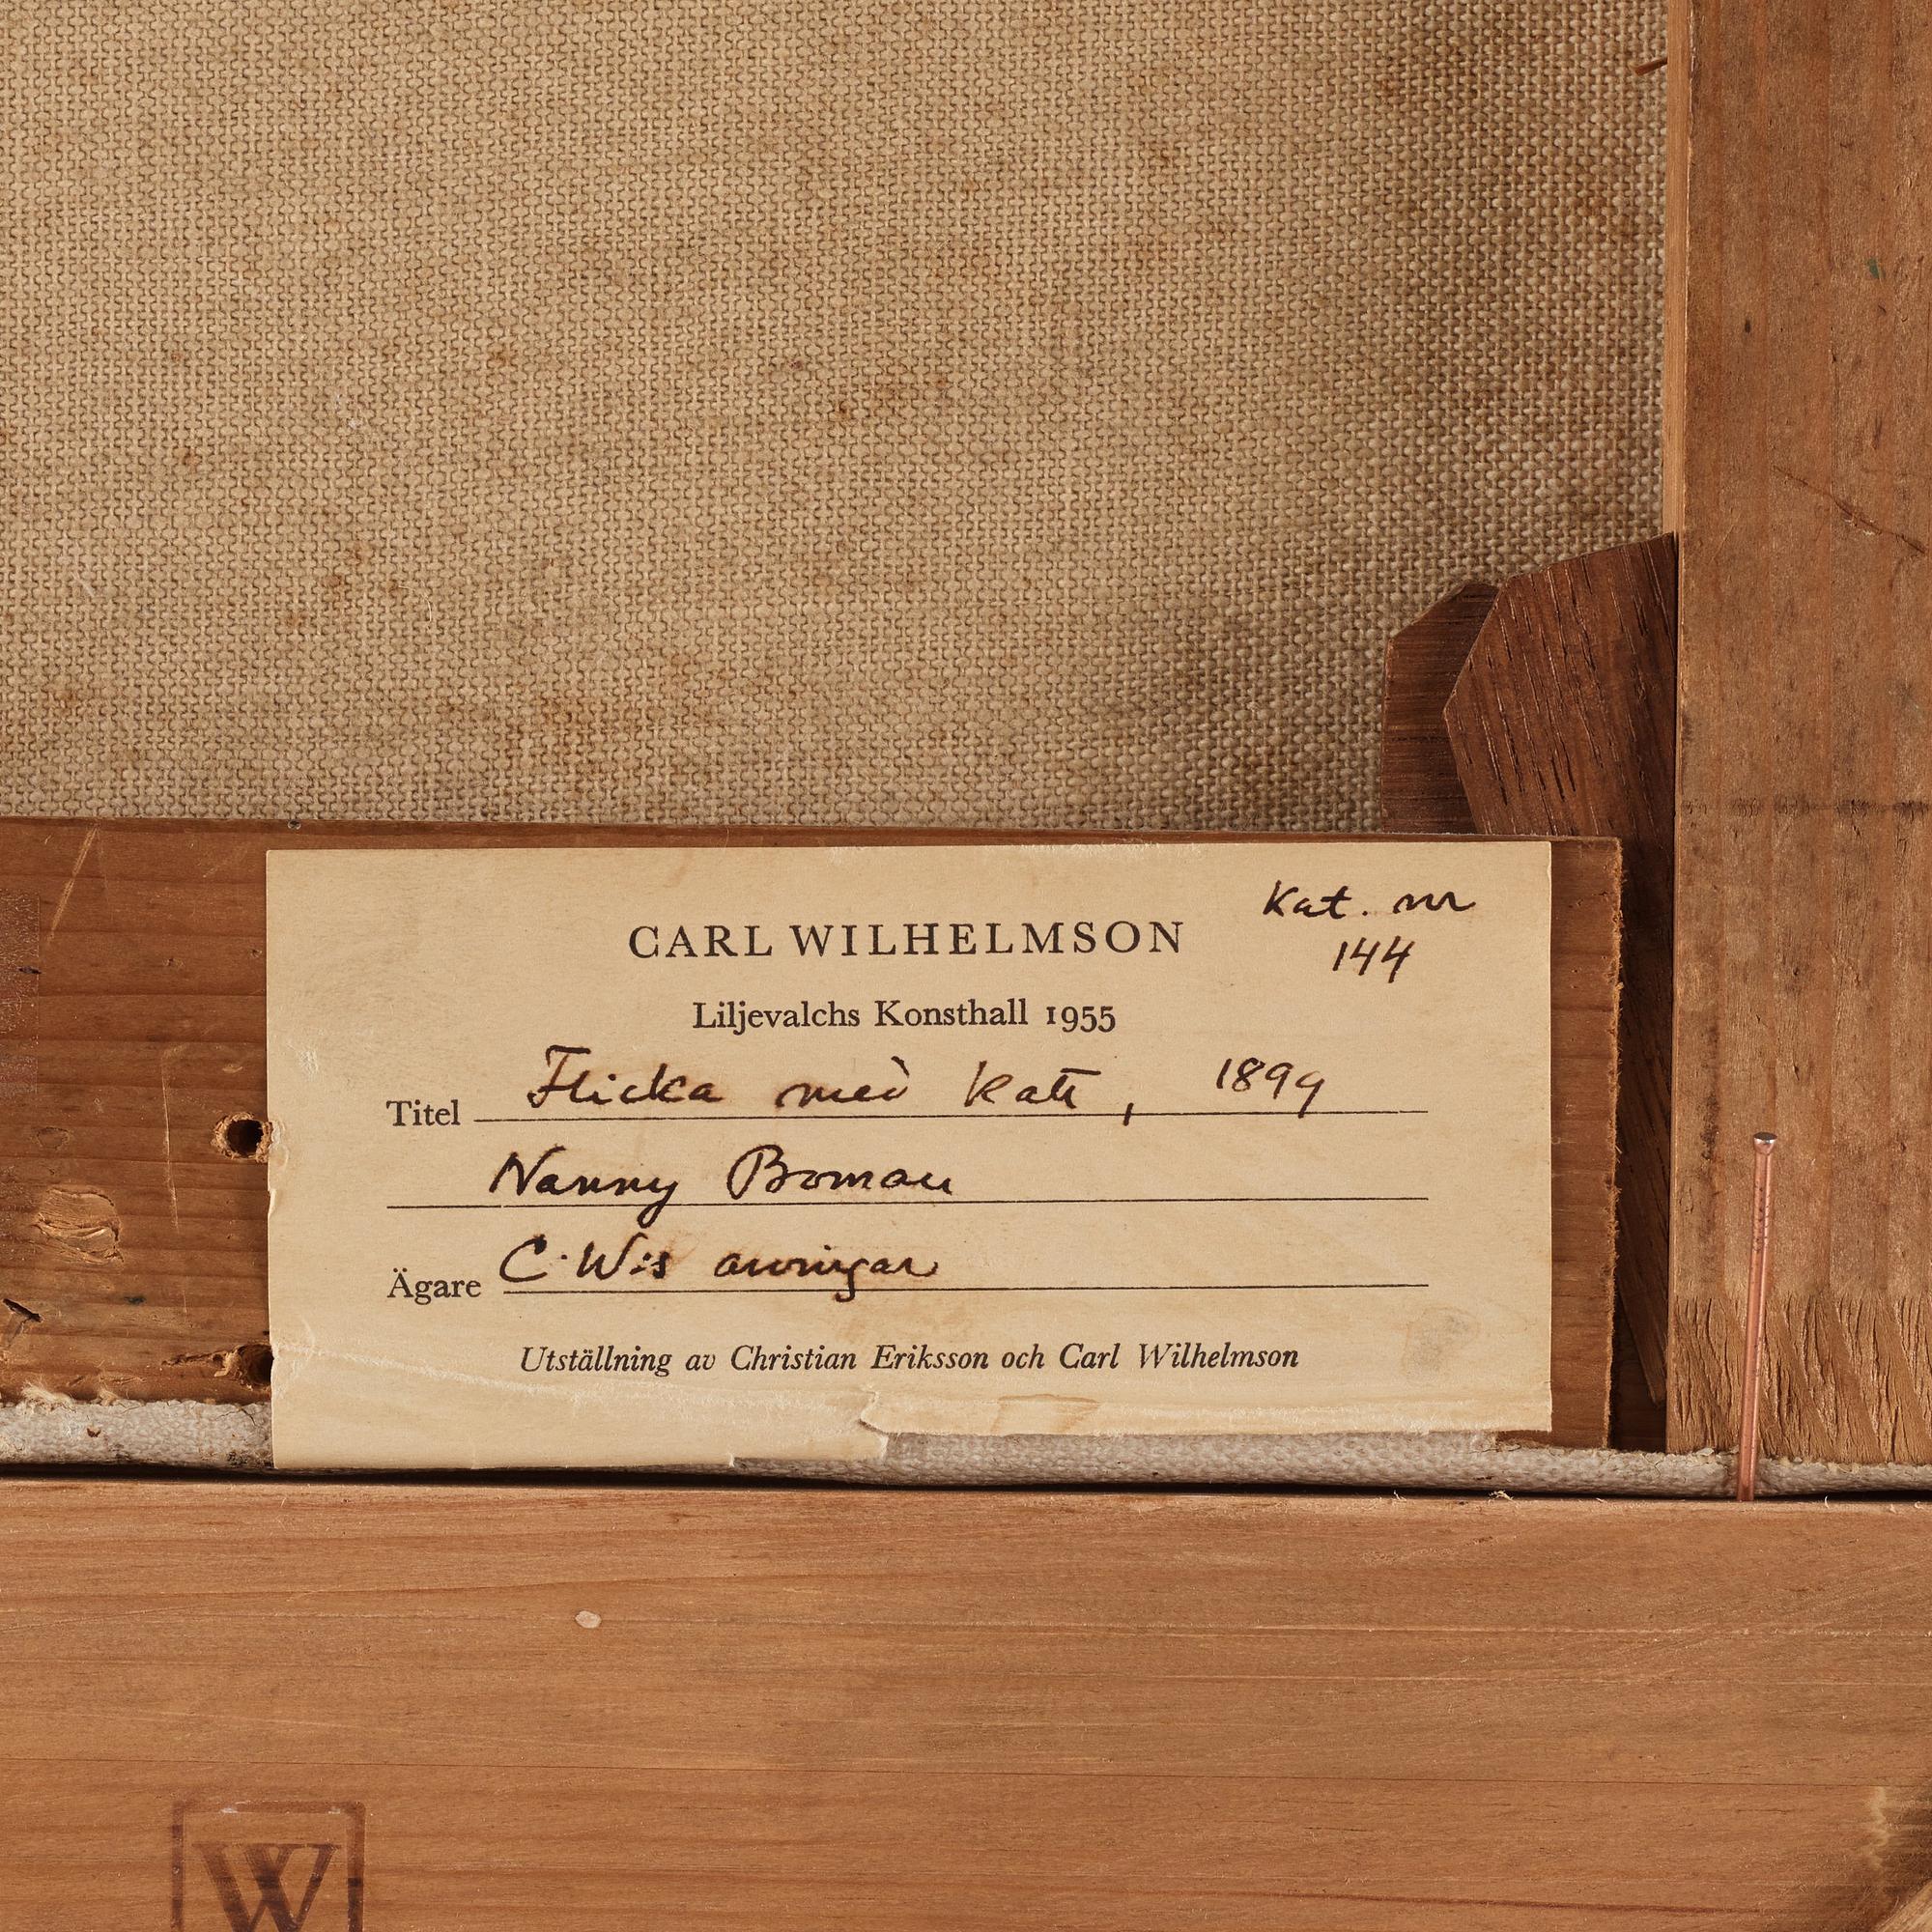 Kat. nr
144
CARL WILHELMSON
Liljevalchs Konsthall 1955
Titel Flicka med katt, 1899
Nanny Boman
Ägare C. W:s arvingar
Utställning av Christian Eriksson och Carl Wilhelmson
W